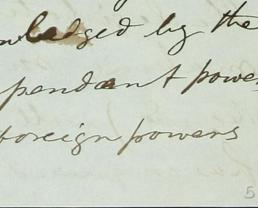 nowledged by the
pendant power
foreign powers
5